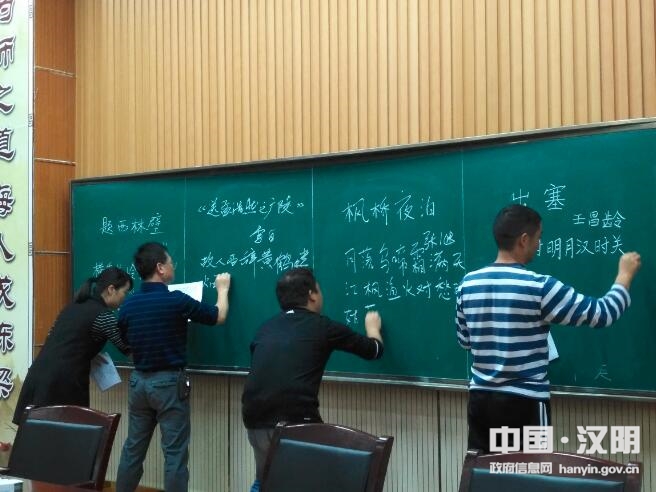 师之道 海人成栋梁
题西林壁
横看
送孟浩然之广陵
李白
故人西辞黄鹤楼
枫桥夜泊
张继
月落乌啼霜满天
江枫渔火对愁
姑
出塞
王昌龄
明月汉时关
中国·汉阴
政府信息网 hanyin.gov.cn